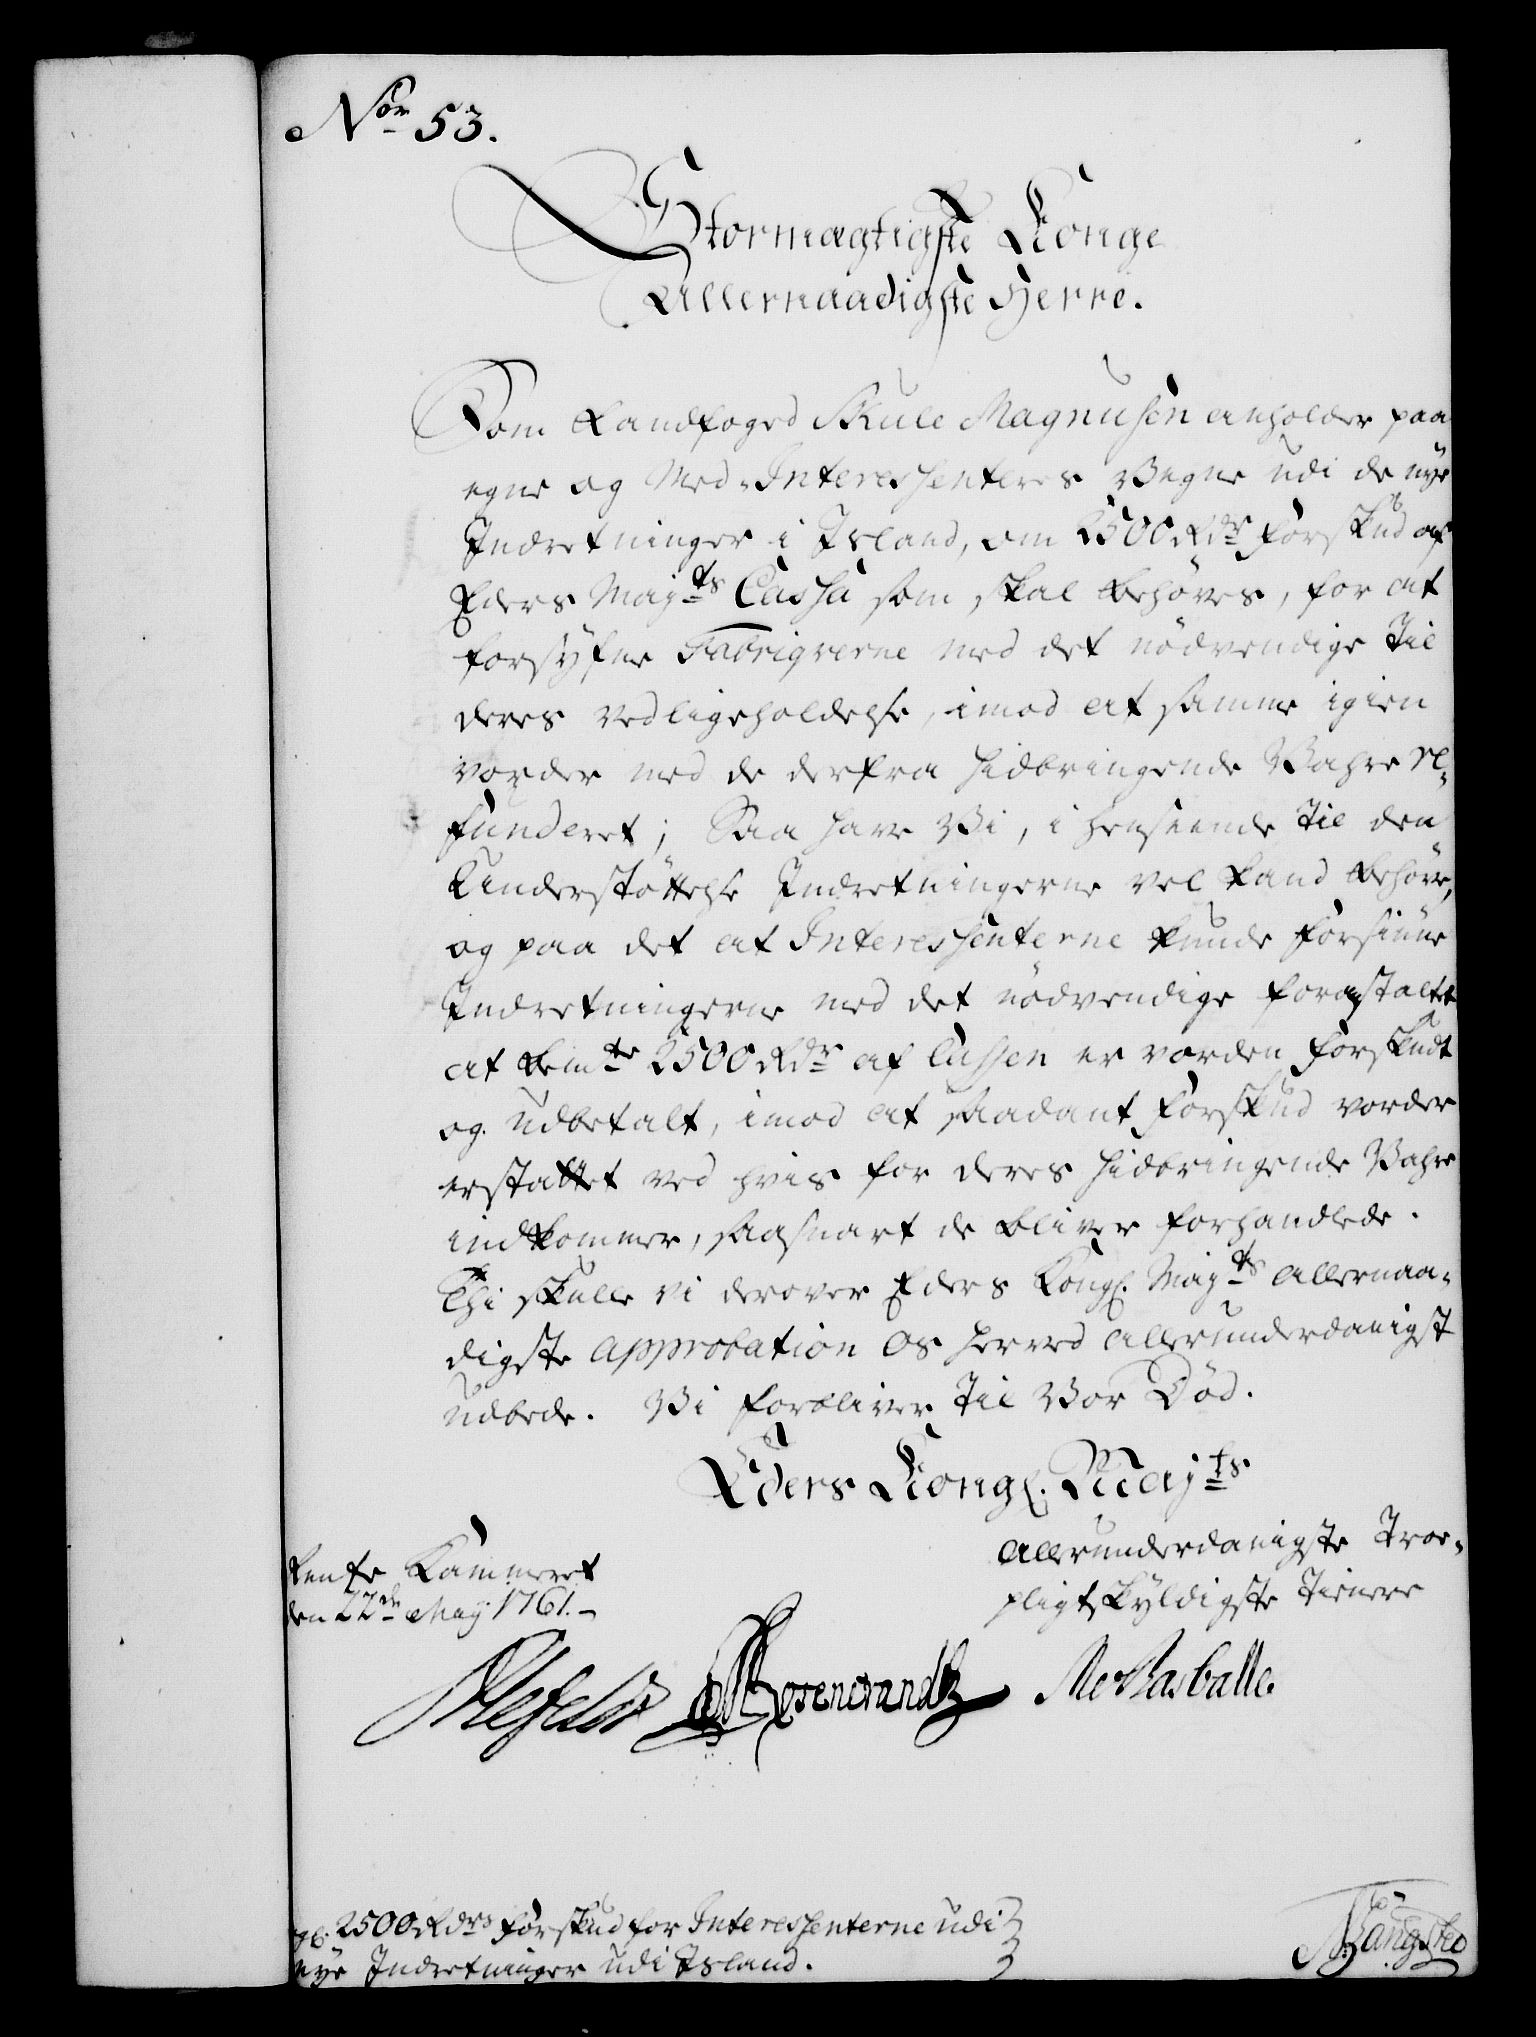 Nor 53.
Stormægtigste Konge
Allernaadigste Herre.
Som Landfoged Skule Magnusen anholder paa
egne og Med-Interessenteres Vegne udi de nye
Indretninger i Island, om 2500 Rdr Forskud af
Eders Mayts Cassa som skal behøves, for at
forsyfne Fabriqverne med det nødvendige til
deres vedligeholdelse, imod at samme igien
vorder med de derfra hidbringende Vahre re-
funderet; Saa have Vi, i henseende til den
Understøttelse Indretningerne vel kand behøve,
og paa det at Interessenterne kunde forsiune
Indretningerne med det nødvendige foranstaltet
at bemte 2500 Rdr af Cassen er vorden forskudt
og udbetalt, imod at saadant Forskud vorder
erstattet ved hvis for deres hidbringende Vahre
indkommer, saasnart de bliver forhandlede.
Thi skulle vi derover Eders Kongl. Mayts allernaa-
digste approbation os herved allerunderdanigst
udbede. Vi forbliver til Vor Død.
Eders Kongl. Mayts
allerunderdanigste Troe-
pligtskyldigste Tienere
Rente Kammeret
den 22de May 1761.
Ahlefeldt Rosencrandtz de Rasballe.
2500 Rdrs Forskud for Interessenterne udi
nye Indretninger udi Island.